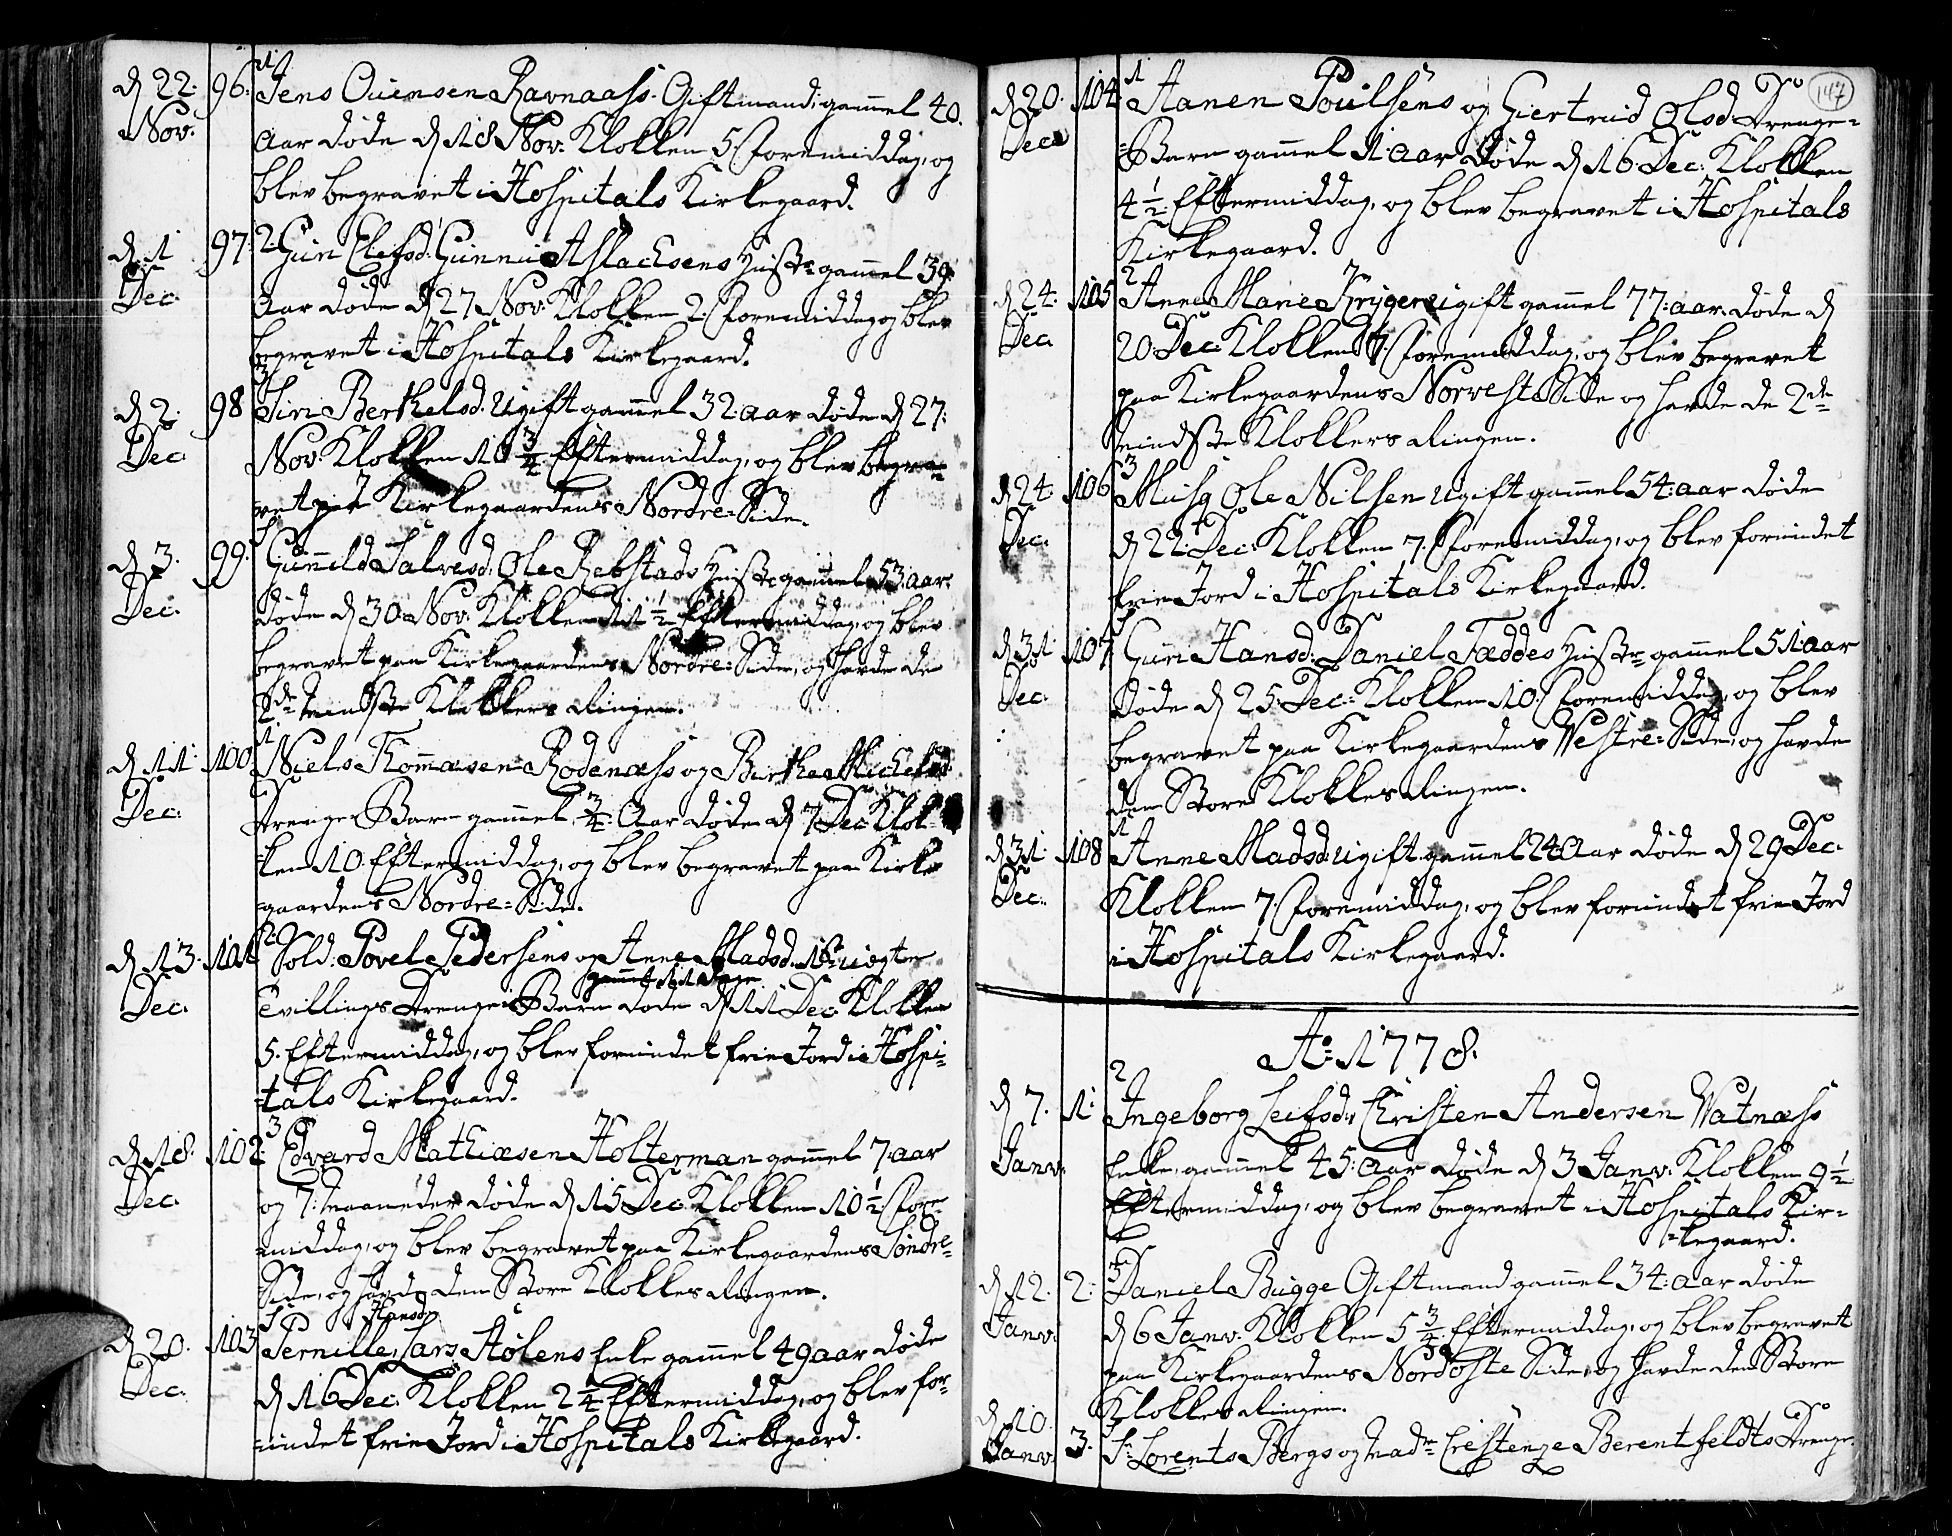 d 22. 96. 1 Jens Ouensen Ravnaass. Giftmand gammel 40.
Nov. Aar døde d 18 Nov: Klokken 5. Formiddag, og
blev begravet i Hospitals Kirkegaard.
d. 1 97. 2. Gun Elefsd: Gunnu Aslachsens Hustr: gammel 39
Dec. Aar døde d 27 Nov: Klokken 2. Formiddag og blev
begravet i Hospitals Kirkegaard.
3
d 2. 98 Siri Berthelsd. Ugift gammel 32: aar døde d 27:
Dec. Nov: Klokken 10 3/4 Eftermiddag, og blev begra=
=vet paa Kirkegaardens Nordre=Side.
d 3. 99. Gunnild Salvesd. Ole Rebstads Hustr: gammel 53 aar
Dec. døde d 30 Nov. Klokken 11 1/2 Eftermiddag, og blev
begravet paa Kirkegaardens Nordre=Side, og havde de
2de mindste Klokkers Ringen.
1
d 11. 100 Niels Thommæsen Rodenæss og Birthe Michelsd.
Dec. Drenge Barn gammel 3/4 Aar døde d 7 Dec Klok=
=ken 10. Eftermiddag, og blev begravet paa Kirke
=gaardens Nordre=Side.
2.
d 13. 101 Sold: Povel Pedersens og Anne Madsd.
gammel 11 Dage
Dec. Tvillings Drenge Barn døde d 11 Dec: Klokken
5. Eftermiddag, og blev forundet frie Jord i Hospi=
=tals Kirkegaard.
3
d 18. 102. Edvard Mathiæsen Holterman gammel 7: aar
Dec. og 7: maaneder døde d 15 Dec Klokken 10 1/2 For=
=middag, og blev begravet paa Kirkegaardens Søndre=
Side, og havde den Store Klokkes Ringen.
Hansd.
d 20. 103 Pernille, Lars Hølens Enke gammel 49 aar døde
Dec. d 16 Dec. Klokken 2 1/4 Eftermiddag, og blev for=
=undet frie Jord i Hospitals Kirkegaard.
147
d 20. 104 1 Aanen Poulsens og Giertrud Olsd. Drenge=
Dec =Barn gammel 1. aar døde d 16 Dec: Klokken
4 1/2 Eftermiddag, og blev begravet i Hospitals
Kirkegaard.
2
d 24. 105 Anne Marie Kryger ugift gammel 77: aar døde d
Dec. 20 Dec: Klokken 7 Formiddag, og blev begravet
paa Kirkegaardens Norvest Side og havde de 2de
mindste Klokkers Ringen.
3
d 24. 106 Musq Ole Nilsen ugift gammel 54: aar døde
Dec. d 22. Dec: Klokken 7. Formiddag, og blev forundet
frie Jord i Hospitals Kirkegaard.
d 31. 107 Gun Hansd: Daniel Fæddes Hustr: gammel 51 aar
Dec. døde d 25. Dec: Klokken 10. Formiddag, og blev
begravet paa Kirkegaardens Vestre=Side, og havde
den Store Klokkes Ringen.
1
d 31. 108 Anne Madsd: ugift gammel 24 Aar døde d 29 Dec.
Dec. Klokken 7. Formiddag, og blev forundet frie Jord
i Hospitals Kirkegaard.
Ao: 1778.
2
d 7. 1. Ingeborg Leifsd, Christen Andersen Vatnæss
Janv. Enke gammel 45: Aar døde d 3 Janv. Klokken 9 1/2
Eftermiddag, og blev begravet i Hospitals Kir=
=kegaard.
d 12. 2. Daniel Bugge Giftmand gammel 34: aar døde
Janv. d 6 Janv. Klokken 5 3/4 Eftermiddag, og blev begravet
paa Kirkegaardens Nordoste Side, og havde den Store
Klokkes Ringen.
d 10. Janv. 3. Sr. Lorents Bergs og Madm Cristenze Berentfeldts Drenge